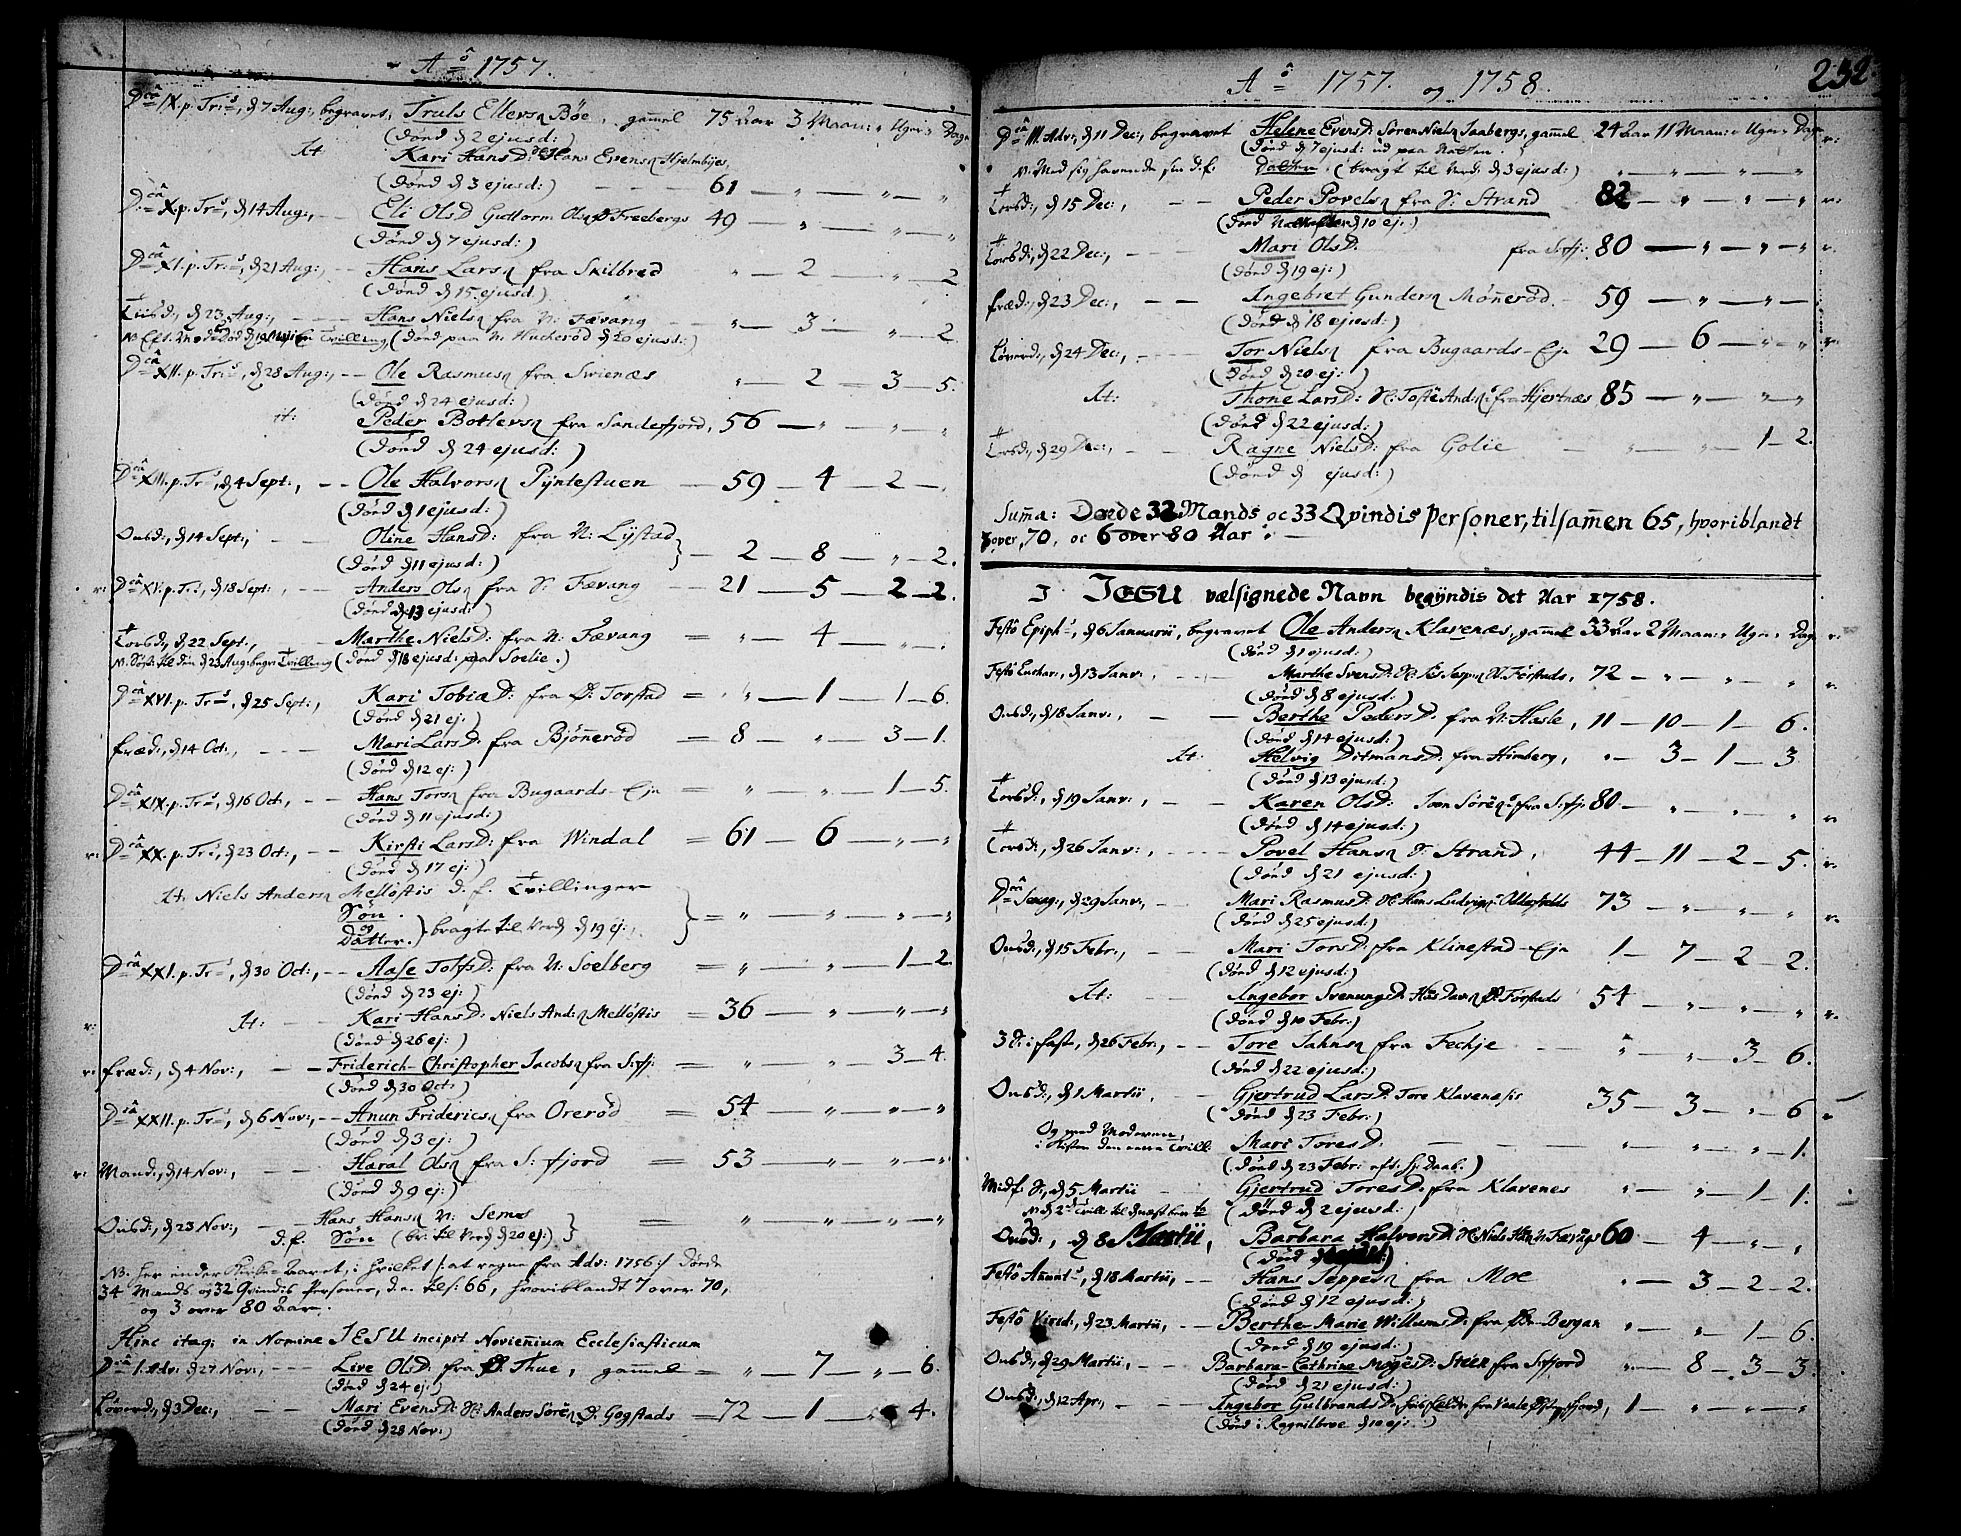 Aô 1757.
Dcâ IX. p. Tr:s, d 7 Aug:, begravet, Truls Ellevsn Bøe, gammel 75 Aar 3 Maan: " Uger " Dage
(død d 2 ejusd:)
It. Kari HansD: Hans Evensn Hjelmbyes,
(død d 3 ejusd:) 61 — " — " — "
Dcâ X. p. Tr:s, d 14 Aug:, — Eli OlsD Guttorm Olsn Ø: Freebergs 49 — " — " — "
(død d 7 ejusd:)
Dcâ XI. p. Tr:s, d 21 Aug:, — Hans Larsn fra Skilbred " — 2 — " — 2
(død d 15 ejusd)
Tiisd:, d 23 Aug:, — Hans Nielsn fra N: Fævang " — 3 — " — 2
(død paa N: Huckerød d 20 ejusd:)
Dcâ XII. p. Tr:s, d 28 Aug:, — Ole Rasmusn fra Svienæs " — 2 — 3 — 5.
(død d 24 ejusd:)
it: Peder Bottersn fra Sandefjord, 56 — " — " — "
(død d 24 ejusd:)
Dcâ XIII. p. Tr:s, d 4 Sept:, — Ole Halvorsn Pyntestuen — 59 — 4 — 2 —
(død d 1 ejusd:)
Onsd:, d 14 Sept:, — Oline HansD: fra N: Lystad — 2 — 8 — " — 2.
(død d 11 ejusd:)
v: Dcâ XV. p. Tr:s, d 18 Sept:, — Anders Olsn fra S: Fævang — 21 — 5 2 — 2.
(død d 13 ejusd:)
Torsd:, d 22 Sept:, — Marthe NielsD: fra N: Fævang = " — 4 — " .
(død d 18 ejusd: paa Soelie.)
Dcâ XVI. p. Tr:s, d 25 Sept:, Kari TobiæD: fra Ø: Torstad = " — 1 — 1 — 6.
(død d 21 ej:)
fræd:, d 14 Oct:, — Mari LarsD: fra Bjønnerød = 8 — " — 3 — 1.
(død d 12 ej:)
Dcâ XIX. p. Tr:s, d 16 Oct:, — Hans Torsn fra Bugaards-Eje = " — " — 1 — 5.
(død d 11 ejusd:)
v: Dcâ XX. p. Tr:s, d 23 Oct:, — Kirsti LarsD: fra Windal = 61 — 6 — " — "
(død d 17 ej:)
It. Niels Andersn Melløstis d. f. Tvillinger
Søn.
og bragte til Verd d 19 ej: = " — " — " — "
Datter.
Dcâ XXI. p. Tr:s, d 30 Oct:, — Aase TolfsD: fra N: Soelberg = " — " — 1 — 2.
(død d 23 ej:)
v: It: — Kari HansD: Niels Andn Melløstis = 36 — " — " — "
(død d 26 ej:)
v: fræd:, d 4 Nov:, — Friderich-Christopher Jacobsn fra S:fj: = " — " 3 — 4.
(død d 30 Oct:)
Dcâ XXII. p. Tr:s, d 6 Nov:, — Anun Fridericsn fra Orerød = 54 — " — " — "
(død d 3 ej:)
v: Mand:, d 14 Nov:, — Haral Olsn fra S: fjord = 53 — " — " — "
(død d 9 ej:)
Onsd:, d 23 Nov:, — Hans Hansn N: Semes
d. f. Søn (br. til Verd d 20 ej:) = " — " — " — "
NB. her ender Kirke-Aaret, i hvilket /: at regne fra Adv: 1756:/ døde
34 Mands og 32 Qvindis Personer, d. e. tils: 66, hvoriblandt 7 over 70,
og 3 over 80 Aar.
Hinc itaq: in Nomine JESU incipit Noviennium Ecclesiasticum
Dcâ 1. Adv: d 27 Nov:, — Live OlsD: fra Ø: Thue, gammel = " — 7 — " — 6.
(død d 24 ej:)
Løverd:, d 3 Dec:, — Mari EvensD: H: Anders Sørensn Ø: Gogstads = 72 — 1 — " 4.
(død d 28 Nov:)
Aô 1757. og 1758. 232
Dcâ III. Adv:, d 11 Dec:, begravet Helene EvensD: Søren Nielsn Saabergs, gammel 24 Aar 11 Maan: " Uger " Dage v:
(død d 7 ejusd: ud paa Natten.
v: Med sig havende sin d. f. Datter. (bragt til Verd. d 3 ejusd:) " — " — " — "
Torsd:, d 15 Dec:, — Peder Povelsn fra S: Strand 82 — " — " — " v:
(død d 10 ej:)
Torsd:, d 22 Dec:, — Mari OlsD: fra S:fj: 80 — " — " — " v:
(død d 19 ej:)
fræd:, d 23 Dec:, — Ingebret Gundersn Mønnerød. 59 — " — " —
(død d 18 ejusd:)
Løverd:, d 24 Dec:, — Tor Nielsn fra Bugaards-Eje 29 — 6 — " — " v:
(død d 20 ej:)
It: Thone LarsD: fra Hjertnæs 85 — " — " "
(død d 22 ejusd:)
Torsd:, d 29 Dec:, — Ragne NielsD: fra Golie — " — " 1 — 2.
(død d ejusd:)
Summa: Døde 32 Mands oc 33 Qvindis Personer, tilsammen 65, hvoriblandt
over 70, oc 6 over 80 Aar. —
I JESU velsignede Navn begyndis det Aar 1758.
Festô Epiph:s, d 6 Januarii, begravet Ole Andersn Klavenæs, gammel 33 Aar 2 Maan: " Uger " Dage v:
(død d 1 ejusd:)
d 13 Janv:, Marthe SvensD: 72 — " — " — " v:
(død d 8 ejusd:)
Onsd:, d 18 Janv:, — Berthe PedersD: fra N: Hasle, 11 — 10 — 1 — 6.
(død d 14 ejusd:)
It: Helvig DitmansD: fra Himberg, " — 3 — 1 — 3
(død d 13 ejusd:)
Torsd:, d 19 Janv:, — Karen OlsD: fra S:fj: 80 — " — " — " v:
(død d 14 ejusd:)
Torsd:, d 26 Janv:, — Povel Hansn S: Strand, 44 — 11 — 2 — 5. v:
(død d 21 ejusd:)
Dcâ Sexag:, d 29 Janv:, — Mari RasmusD: 73 — " — " — " v:
(død d 25 ejusd:)
Onsd:, d 15 Febr:, — Mari TorsD: fra Klinestad-Eje 1 — 7 — 2 — 2.
(død d 12 ejusd:)
It: — Ingebor SvenungsD: 54 — " — " — " v:
(død d 10 Febr:)
3 D: i fast, d 26 Febr:, — Tore Jahnsn fra Feckje — " — " 3 — 6.
(død d 22 ejusd:)
Onsd:, d 1 Martii, — Gjertrud LarsD: Tore Klavenæsis 35 — 3 — " — 6 v:
(død d 23 Febr:)
Og med Moderen
i Kisten den eene Tvill: Mari ToresD: — " — " — " — 1.
(død d 23 Febr: eft. Hj. Daab.)
Midf: S:, d 5 Martii — Gjertrud ToresD: fra Klavenes " — " — 1 — 1.
(død d 2 ejusd:)
Onsd:, d 8 Martii, Barbara HalvorsD: 60 — 4 — " — ,
Festô Anunt:s, d 18 Martii, — Hans Jeppesn fra Moe " — 3 — 2 — 2.
(død d 12 ejusd:)
Festô Virid:, d 23 Martii, — Berthe-Marie WillumsD: fra Ø: Bergan " — " — 1 — 6.
(død d 19 ejusd:)
Onsd:, d 29 Martii, — Barbara-Cathrine MognsD: Steen fra S:fjord " — 8 — 3 — 3.
(død d 21 ejusd:)
Onsd:, d 12 Apr:, — Ingebor GulbrandsD: 1 — " — " — "
(død i Ragnilbroe d 10 ej:)